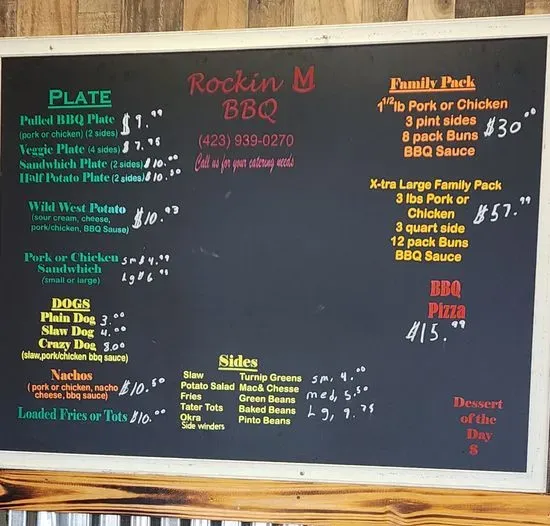 Rockin M
BBQ
(423) 939-0270
Call us for your catering needs
PLATE
Pulled BBQ Plate $9.99
(pork or chicken) (2 sides)
Veggie Plate (4 sides) $7.95
Sandwhich Plate (2 sides) $10.00
Half Potato Plate (2 sides) $10.50
Wild West Potato $10.93
(sour cream, cheese,
pork/chicken, BBQ Sause)
Pork or Chicken sm $4.99
Sandwhich
(small or large) Lg $6.99
DOGS
Plain Dog 3.00
Slaw Dog 4.00
Crazy Dog 8.00
(slaw,pork/chicken bbq sauce)
Nachos
( pork or chicken, nacho $10.50
cheese, bbq sauce)
Loaded Fries or Tots $10.00
Sides
Slaw Turnip Greens sm, 4.00
Potato Salad Mac& Chesse
Fries Green Beans med, 5.50
Tater Tots Baked Beans Lg, 9.75
Okra Pinto Beans
Side winders
Family Pack
1 1/2 lb Pork or Chicken
3 pint sides
8 pack Buns $30.00
BBQ Sauce
X-tra Large Family Pack
3 lbs Pork or
Chicken $57.99
3 quart side
12 pack Buns
BBQ Sauce
BBQ
Pizza
$15.99
Dessert
of the
Day
$